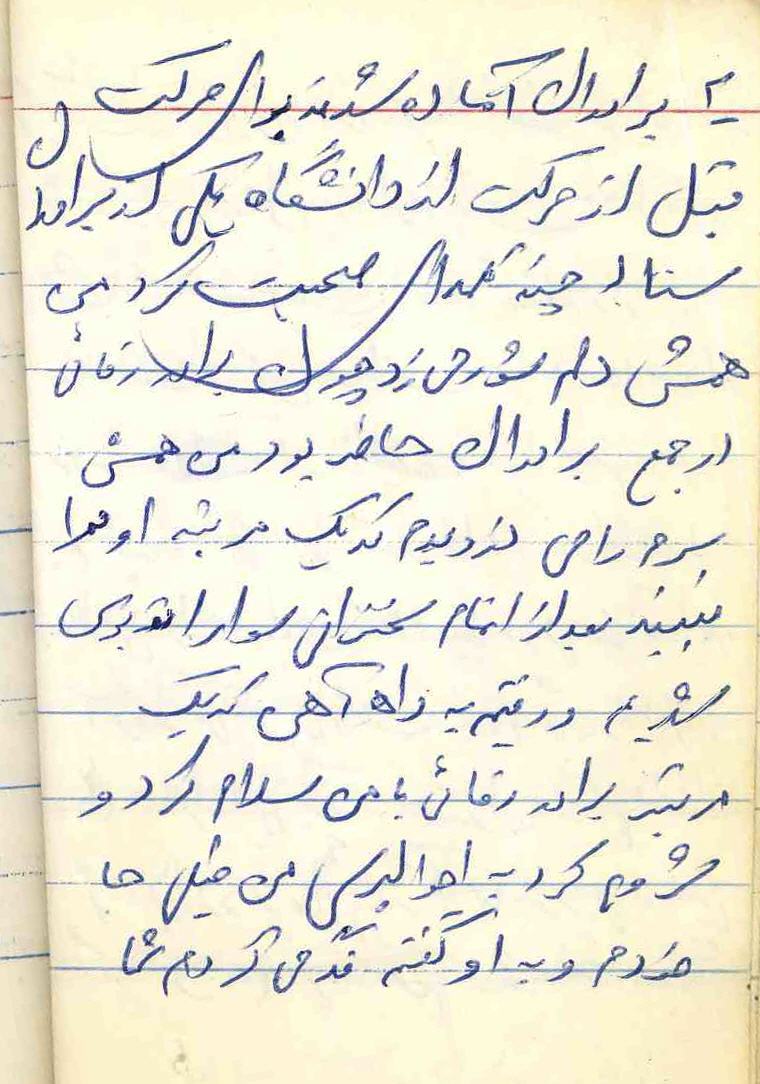 ۲ برادران آماده شدند برای حرکت
قبل از حرکت از دانشگاه یکی از برادران
ستاد چند کلمه‌ای صحبت کرد من
همش دلم شور می زد چون برادر رفائی
در جمع برادران حاضر بود من همش
سرم را می دزدیدم که یک مرتبه او مرا
نبیند بعد از اتمام سخنرانی سوار اتوبوس
شدیم و رفتیم به راه آهن که یک
مرتبه برادر رفائی با من سلام کرد و
شروع کرد به احوالپرسی من خیلی جا
خوردم و به او گفتم فکر می کردم شما